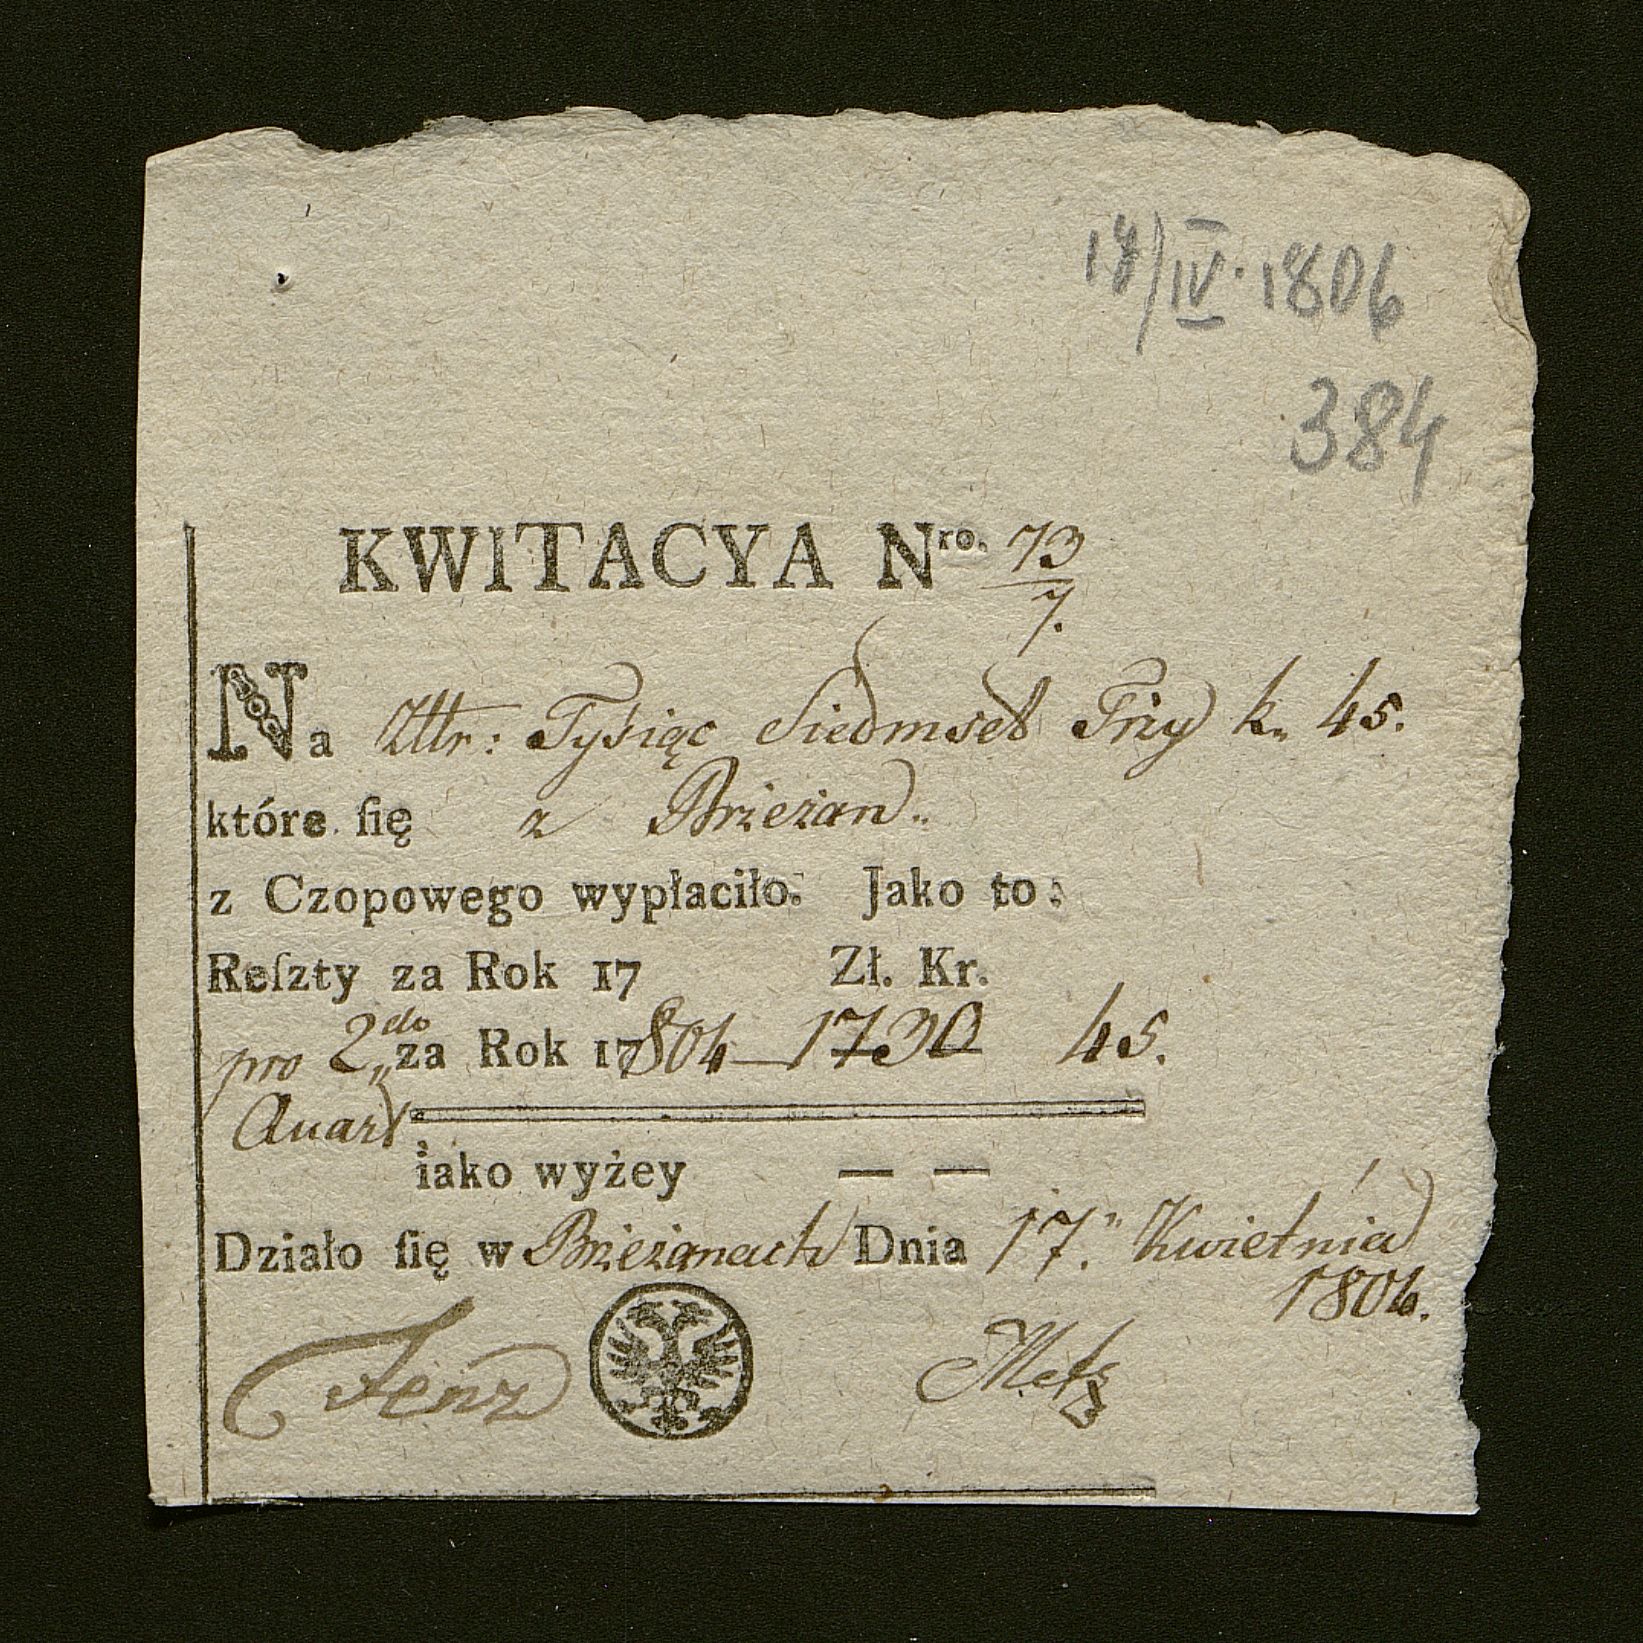 17/IV. 1806
384
KWITACYA Nro. 73
7.
Na Złłr: Tysiąc Siedmset Trzy k. 45.
które ſię z Brzeżan.
z Czopowego wypłaciło. Jako to:
Reſzty za Rok 17 Zł. Kr.
pro 2do za Rok 17804 — 1730 45.
Quart
iako wyżey — —
Działo ſię w Brzeżanach Dnia 17. Kwietnia
1806.